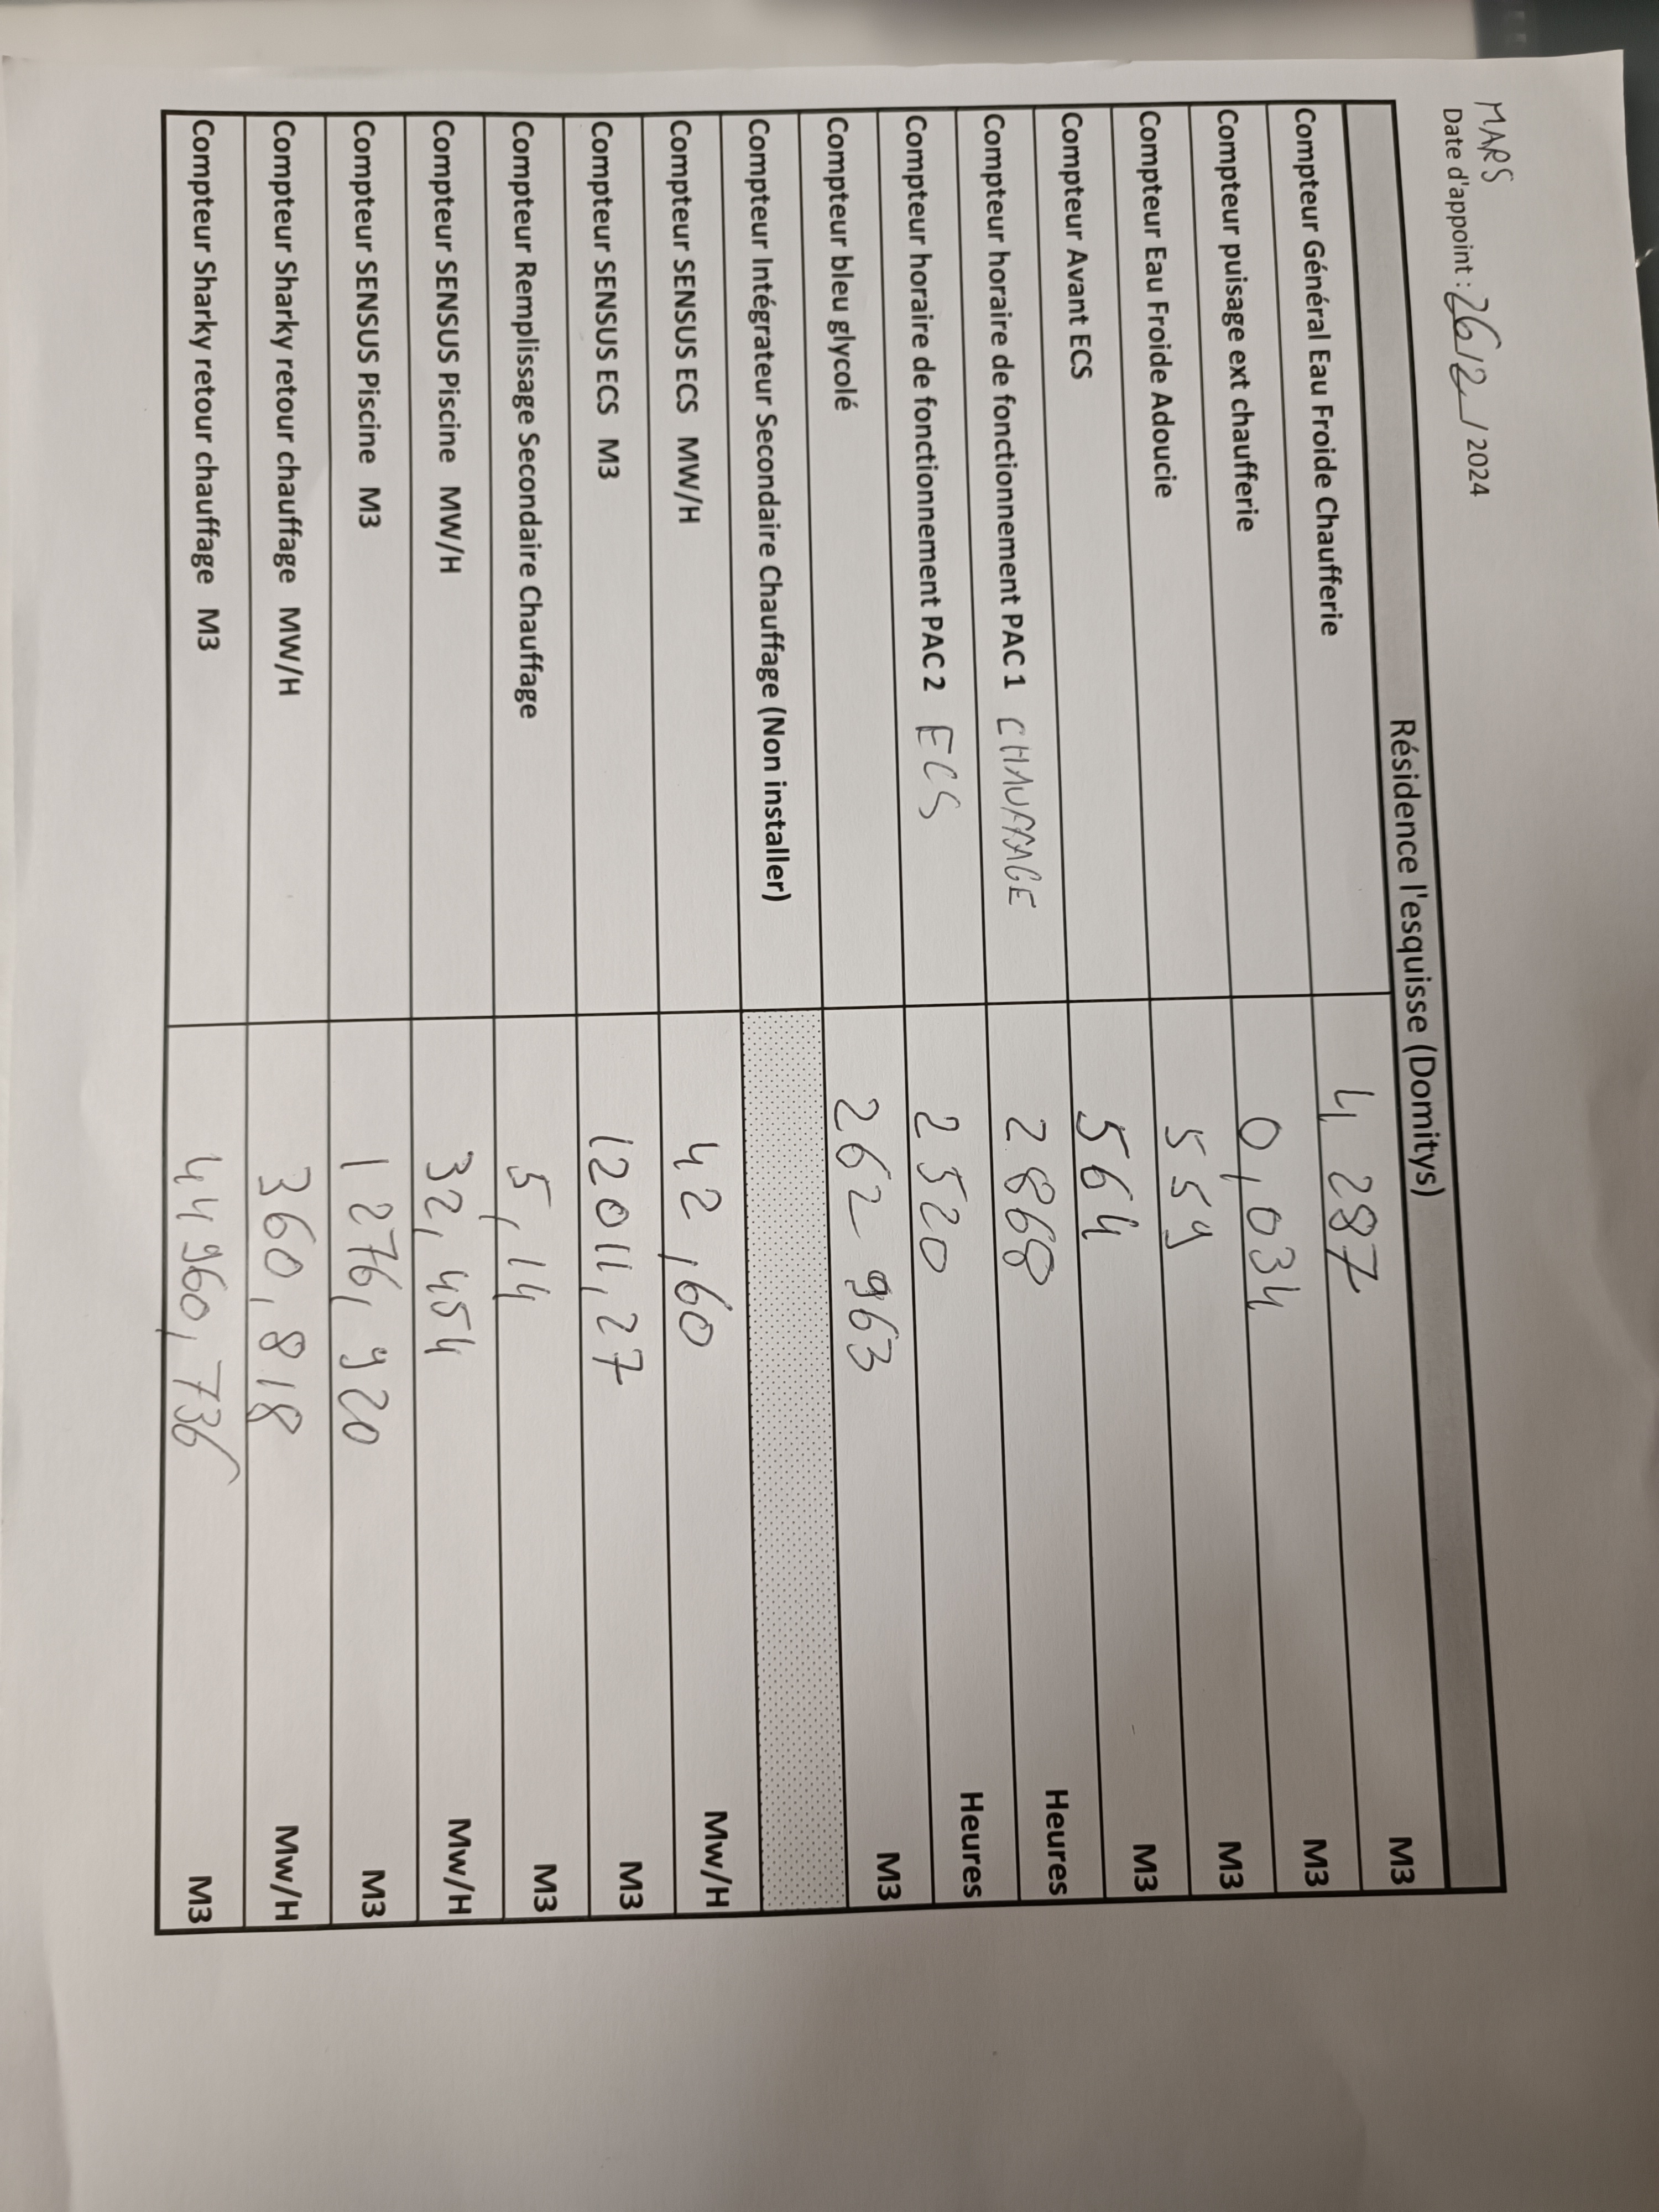 MARS
Date d'appoint : 26/2/2024
Résidence l'esquisse (Domitys)
Compteur Général Eau Froide Chaufferie 4 287 M3
Compteur puisage ext chaufferie 0,034 M3
Compteur Eau Froide Adoucie 559 M3
Compteur Avant ECS 564 M3
Compteur horaire de fonctionnement PAC 1 CHAUFFAGE 2868 Heures
Compteur horaire de fonctionnement PAC 2 ECS 2520 Heures
Compteur bleu glycolé 262 963 M3
Compteur Intégrateur Secondaire Chauffage (Non installer)
Compteur SENSUS ECS MW/H 42,60 Mw/H
Compteur SENSUS ECS M3 12011,27 M3
Compteur Remplissage Secondaire Chauffage 5,14 M3
Compteur SENSUS Piscine MW/H 32,454 Mw/H
Compteur SENSUS Piscine M3 1 276,920 M3
Compteur Sharky retour chauffage MW/H 360,818 Mw/H
Compteur Sharky retour chauffage M3 44960,736 M3